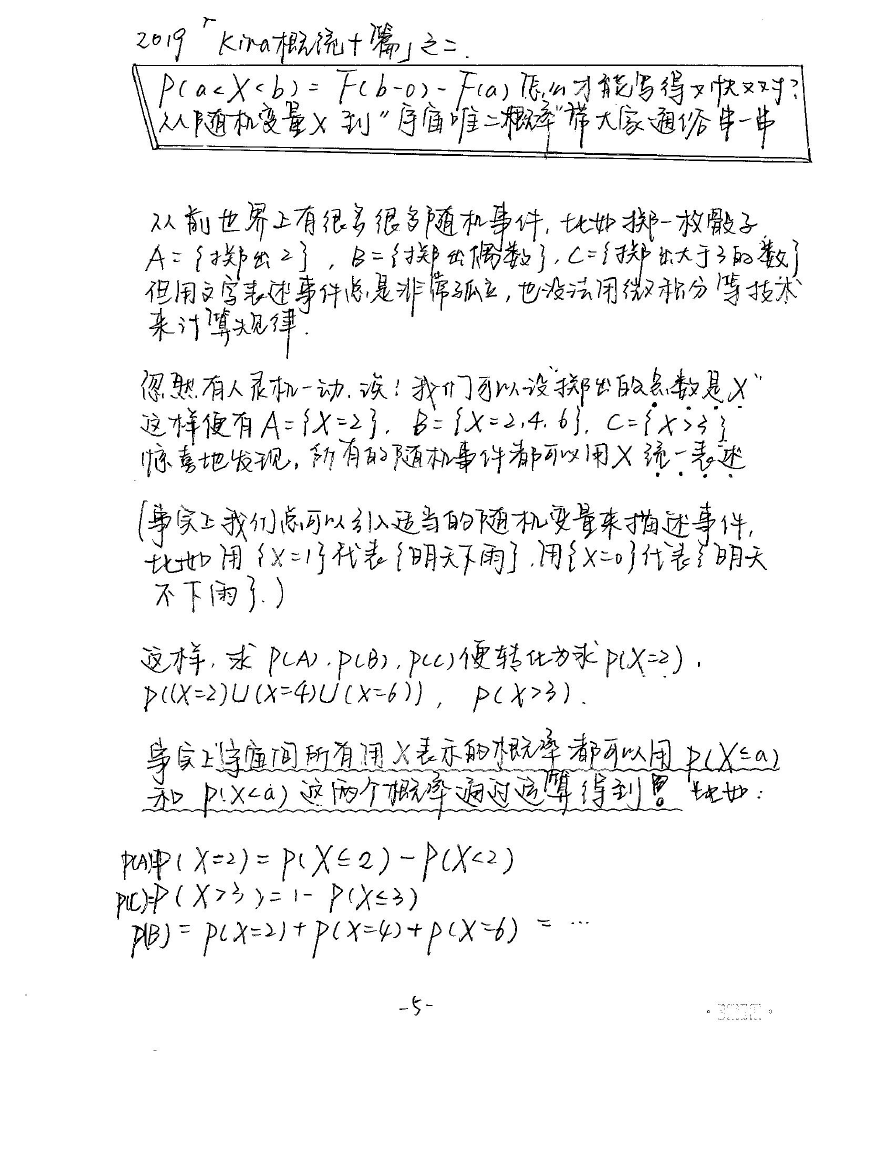 2019「Kira概统十篇」之二.
P(a<X<b) = F(b-0)-F(a) 怎么才能写得又快又对?
从随机变量X到"宇宙唯二概率"带大家通俗串一串
从前世界上有很多很多随机事件, 比如掷一枚骰子,
A={掷出2}, B={掷出偶数}, C={掷出大于3的数}
但用文字表述事件总是非常孤立, 也没法用微积分等技术
来计算规律.
忽然有人灵机一动. 诶! 我们可以设"掷出的点数是X"
这样便有A={X=2}, B={X=2,4,6}, C={X>3}
惊喜地发现, 所有的随机事件都可以用X统一表述
(事实上我们总可以引入适当的随机变量来描述事件,
比如用{X=1}代表{明天下雨}, 用{X=0}代表{明天
不下雨}.)
这样, 求P(A), P(B), P(C)便转化为求P(X=2),
P((X=2)∪(X=4)∪(X=6)), P(X>3).
事实上宇宙间所有用X表示的概率都可以用P(X≤a)
和P(X<a)这两个概率通过运算得到! 比如:
P(A)=P(X=2)=P(X≤2)-P(X<2)
P(C)=P(X>3)=1-P(X≤3)
P(B)=P(X=2)+P(X=4)+P(X=6) = …
-5-